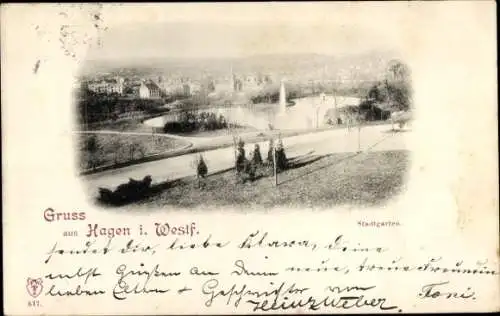 Gruss aus Hagen i. Westf.
Stadtgarten.
sendet Dir, liebe Klara, deine
nebst Grüßen an Deine neue, treue Freundin
lieben Eltern & Geschwister von
Heinz Weber
Toni.
617.